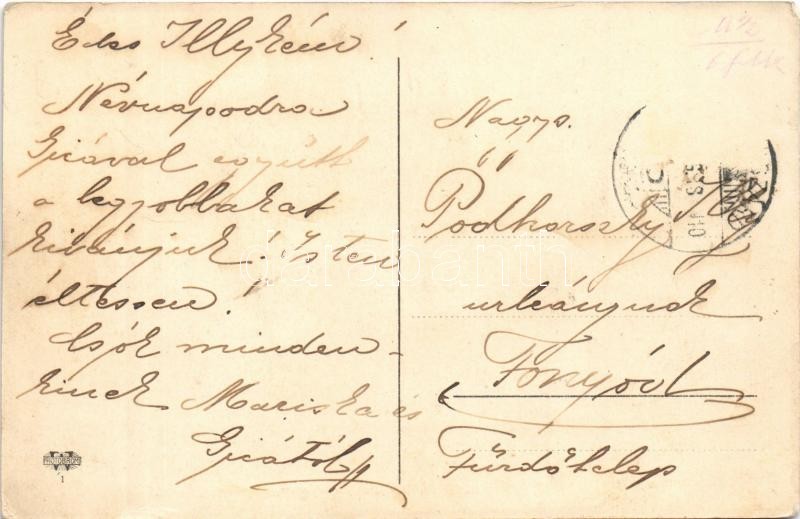 Édes Illykém!
Névnapodra
Gicával együtt
a legjobbakat
kivánjuk! Isten
éltessen!
Csók minden-
kinek Mariska és
Gicától
Nagys.
Pödhorszky
urleánynak
Fonyód
Fürdőtelep
darabanth
1